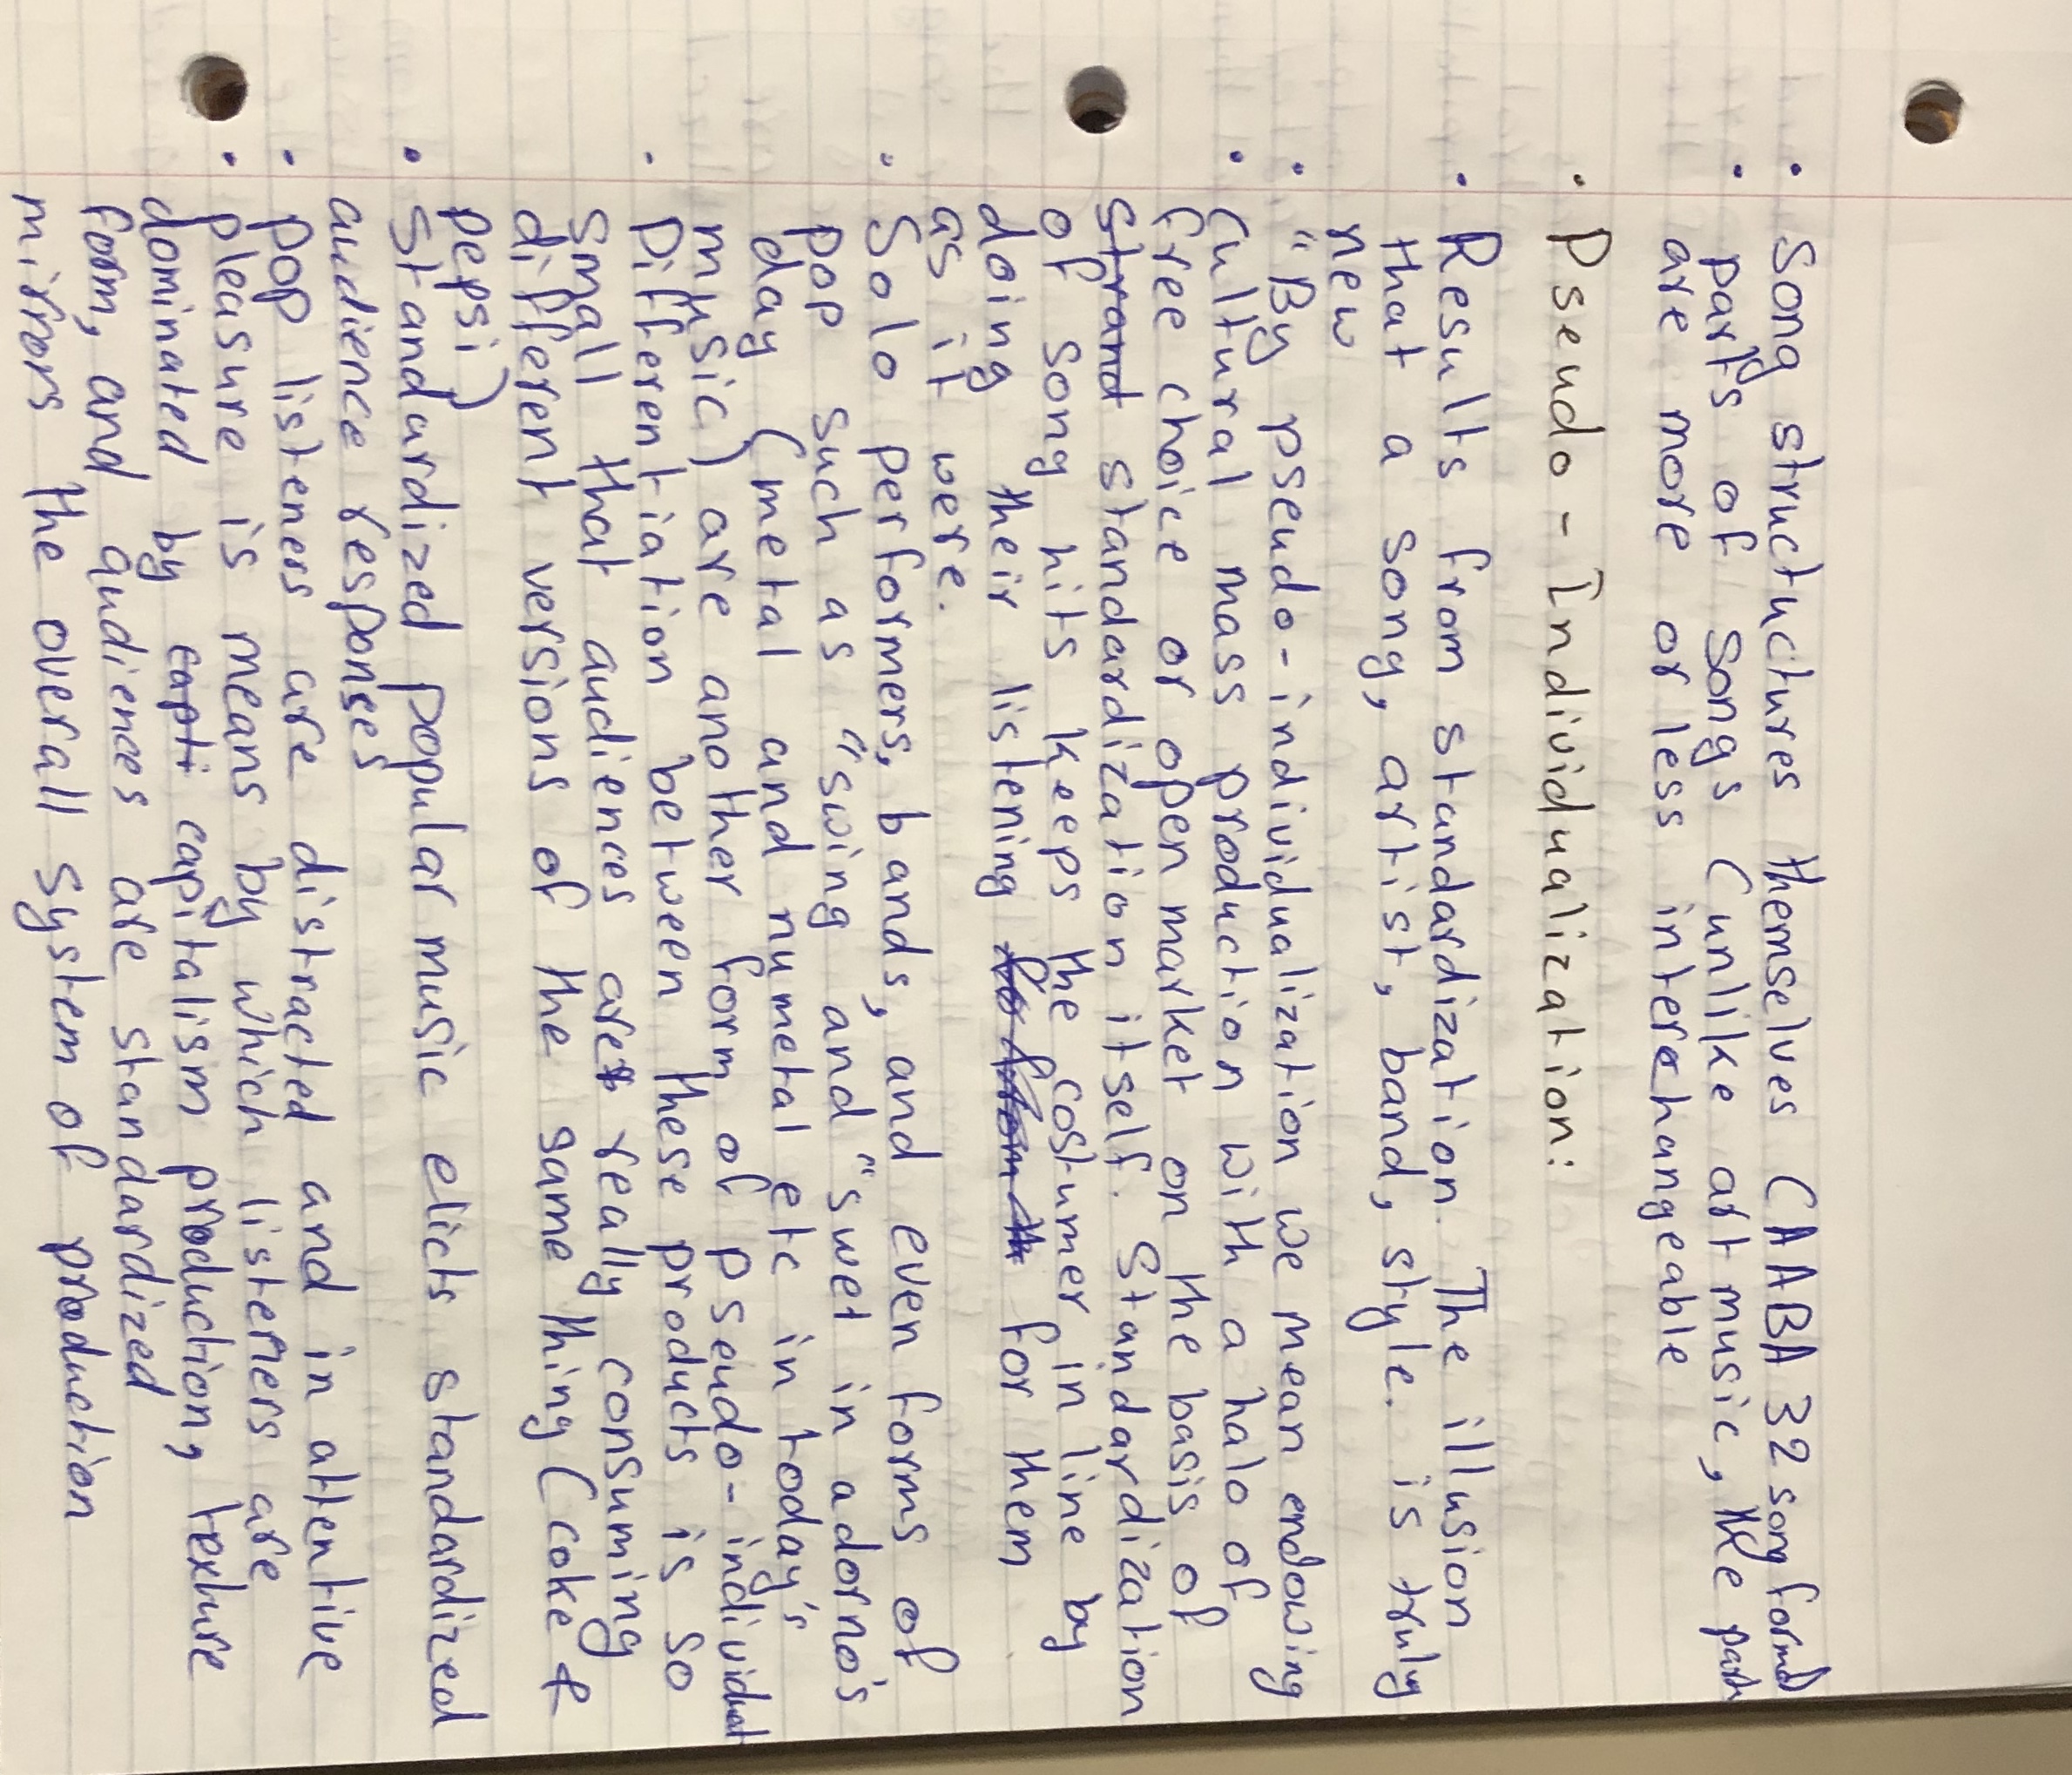 • Song structures themselves (AABA 32 song format
• parts of songs (unlike art music, the parts
are more or less interchangeable
• Pseudo-Individualization:
• Results from standardization. The illusion
that a song, artist, band, style. is truly
new
• "By pseudo-individualization we mean endowing
• Cultural mass production with a halo of
free choice or open market on the basis of
strand standardization itself. Standardization
of song hits keeps the costumer in line by
doing their listening for them
as it were.
• Solo performers, bands, and even forms of
pop such as "swing and "swet in adorno's
day (metal and numetal etc in today's
music) are another form of pseudo-individual
• Differentiation between these products is so
small that audiences are really consuming
different versions of the same thing (coke &
pepsi)
• Standardized popular music elicts standardized
audience responses
• Pop listeners are distracted and in attentive
• pleasure is means by which listeners are
dominated by capt capitalism production, texture
form, and audiences are standardized
mirrors the overall system of production